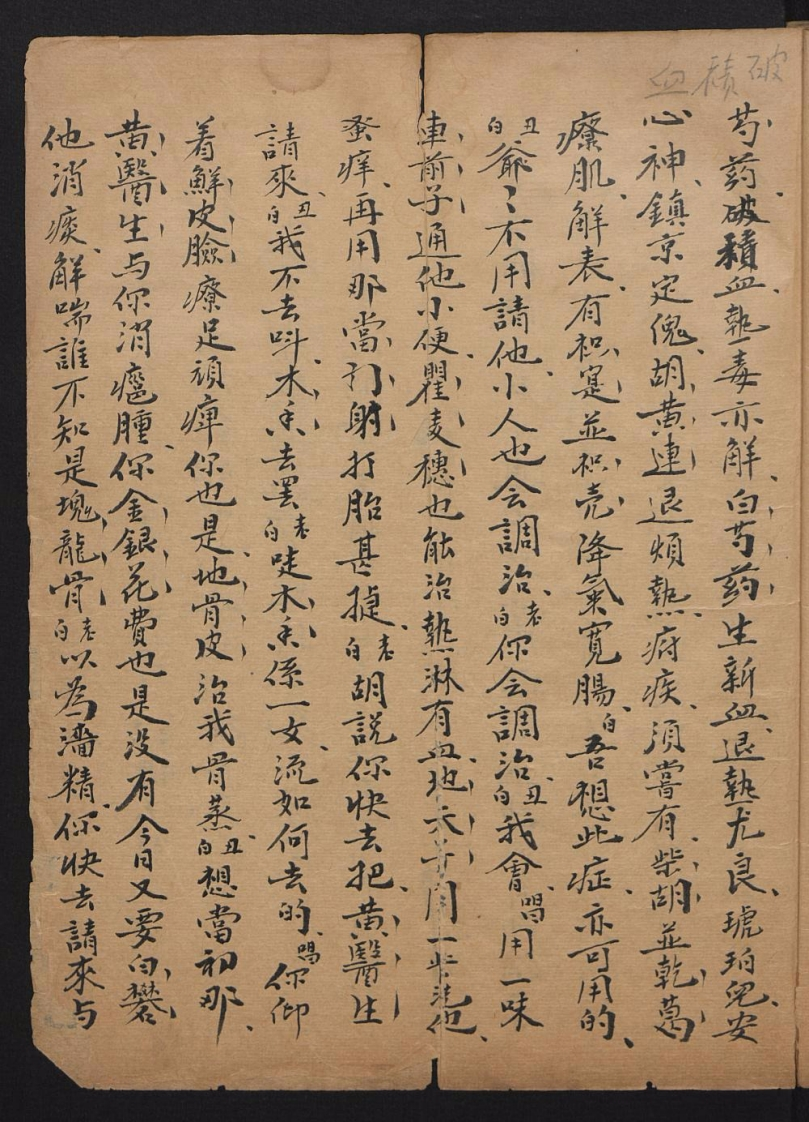 破積血
芍药破積血熱毒亦解白芍药生新血退熱尤良琥珀兒安
心神鎮京定傀胡黄連退煩熱疳疾須嘗有柴胡並乾葛
療肌解表有枳寔並枳壳降氣寬腸白吾想此症亦可用的
丑白爺〻不用請他小人也会調治老白你会調治丑白我會唱用一味
車前子通他小便瞿麦穗也能治熱淋有血地大
蚤痒再用那當打射打胎甚捷老白胡說你快去把黄醫生
請來丑白我不去呌木香去罢老白唗木香係一女流如何去的唱你仰
着鮮皮臉療足頑痺你也是地骨皮治我骨蒸丑白想當初那
黄醫生与你消癰腫你金銀花費也是没有今日又要白礬
他消痰解喘誰不知是塊龍骨老白以為濇精你快去請來与